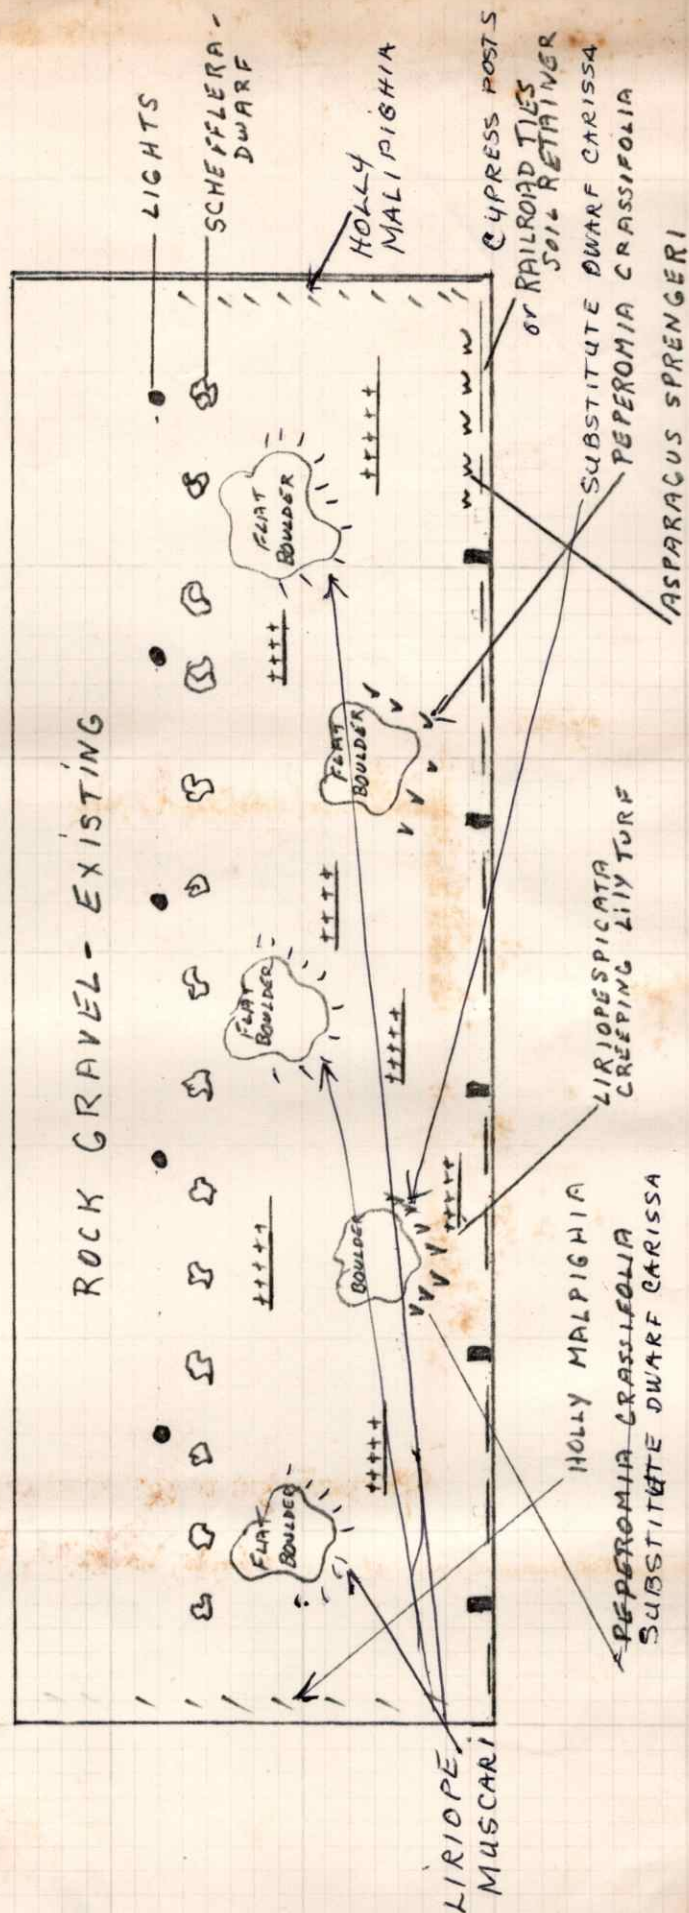 ROCK GRAVEL - EXISTING
LIGHTS
SCHEFFLERA -
DWARF
HOLLY
MALIPIGHIA
CYPRESS POSTS
or RAILROAD TIES
SOIL RETAINER
SUBSTITUTE DWARF CARISSA
PEPEROMIA CRASSIFOLIA
ASPARAGUS SPRENGERI
FLAT
BOULDER
FLAT
BOULDER
FLAT
BOULDER
BOULDER
FLAT
BOULDER
LIRIOPESPICATA
CREEPING LILY TURF
HOLLY MALPIGHIA
PEPEROMIA CRASSIFOLIA
SUBSTITUTE DWARF CARISSA
LIRIOPE
MUSCARI